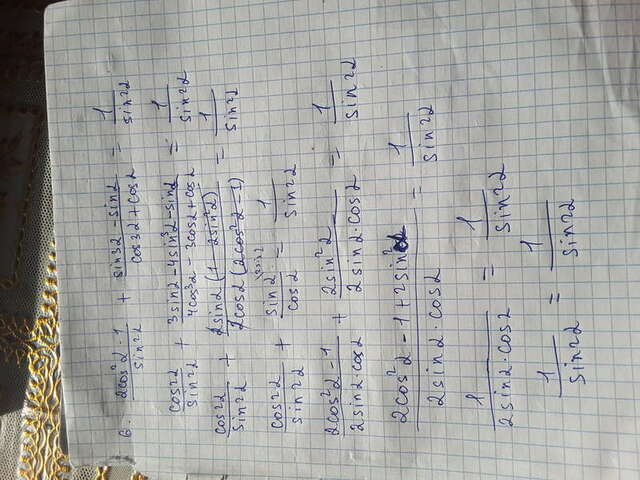 6. (2cos²α - 1)/(sin2α) + (sin3α - sinα)/(cos3α + cosα) = 1/(sin2α)
(cos2α)/(sin2α) + (3sinα - 4sin³α - sinα)/(4cos³α - 3cosα + cosα) = 1/(sin2α)
(cos2α)/(sin2α) + (2sinα(1 - 2sin²α))/(2cosα(2cos²α - 1)) = 1/(sin2α)
(cos2α)/(sin2α) + (sinα)/(cosα) \2sinα = 1/(sin2α)
(2cos²α - 1)/(2sinα·cosα) + (2sin²α)/(2sinα·cosα) = 1/(sin2α)
(2cos²α - 1 + 2sin²α)/(2sinα·cosα) = 1/(sin2α)
1/(2sinα·cosα) = 1/(sin2α)
1/(sin2α) = 1/(sin2α)